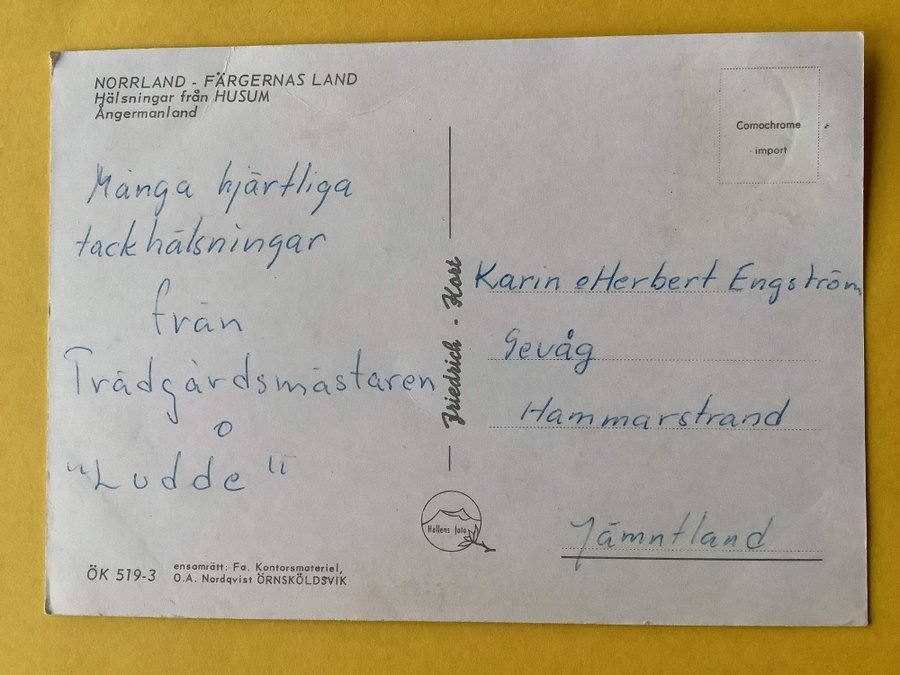 NORRLAND - FÄRGERNAS LAND
Hälsningar från HUSUM
Ångermanland
Många hjärtliga
tackhälsningar
från
Trädgårdsmästaren
o
"Ludde"
ÖK 519-3
ensamrätt: Fa. Kontorsmateriel,
O.A. Nordqvist ÖRNSKÖLDSVIK
Friedrich - Kort
Hallens foto
Comochrome
import
Karin o Herbert Engström
Gevåg
Hammarstrand
Jämntland